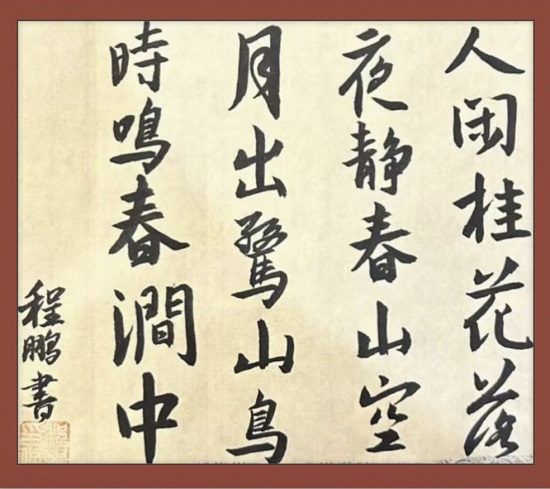 人闲桂花落
夜静春山空
月出驚山鳥
時鳴春澗中
程鹏書